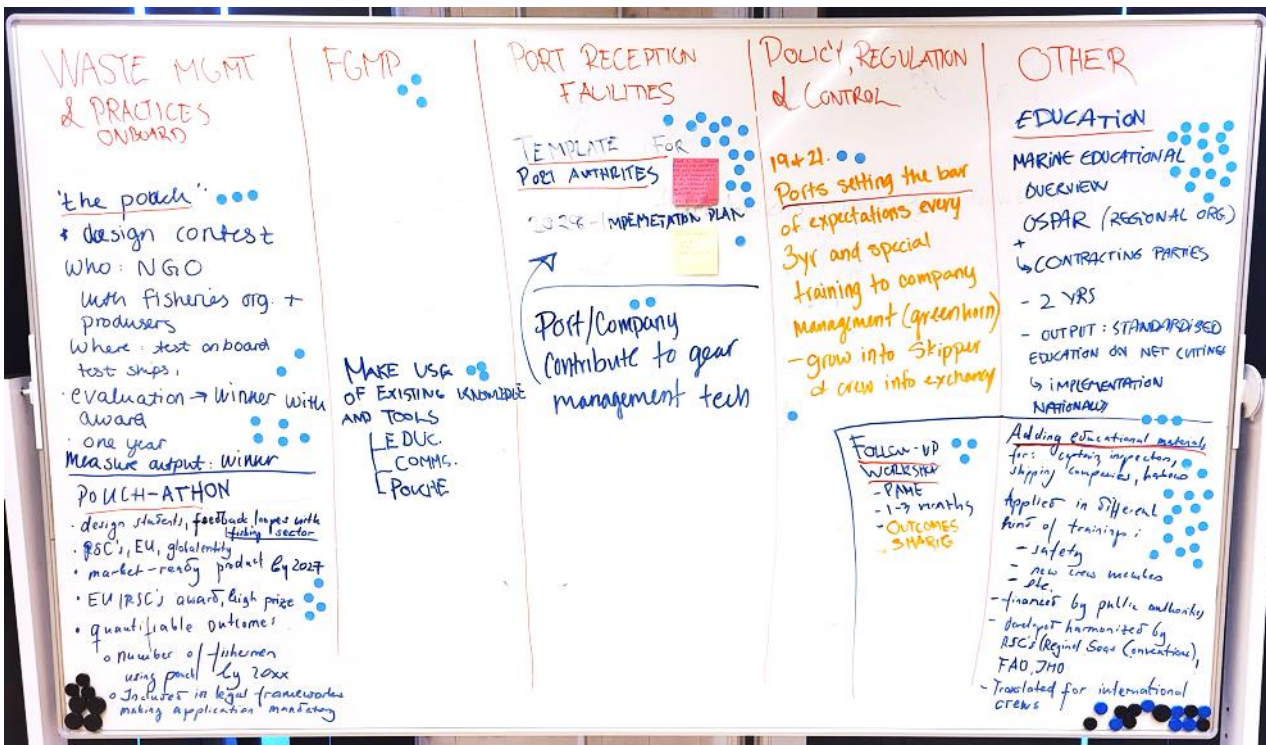 WASTE MGMT
& PRACTICES
ONBOARD
"the pouch"
* design contest
Who: NGO
with fisheries org. +
produsers
Where: test onboard
test ships,
· evaluation → winner with
award
· one year
Measure output: winner
POUCH-ATHON
· design students, feedback loopes with
fishing sector
· RSC's, EU, global entity
· market-ready product by 2027
· EU/RSC's award, high prize
· quantifiable outcomes
o number of fishermen
using pouch by 20xx
o Included in legal frameworks
making application mandatory
FGMP
MAKE USE
OF EXISTING KNOWLEDGE
AND TOOLS
EDUC.
COMMS.
POUCHE
PORT RECEPTION
FACILITIES
TEMPLATE FOR
PORT AUTHRITES
2028 - IMPEMETATION PLAN
Port/Company
contribute to gear
management tech
POLICY, REGULATION
& CONTROL
19+21.
Ports setting the bar
of expectations every
3yr and special
training to company
management (greenhorn)
- grow into Skipper
& crew info exchange
FOLLOW-UP
WORKSHOP
- PAME
- 1-3 months
- OUTCOMES
SHARIG
OTHER
EDUCATION
MARINE EDUCATIONAL
OVERVIEW
OSPAR (REGIONAL ORG)
+
↳ CONTRACTING PARTIES
- 2 YRS
- OUTPUT: STANDARDISED
EDUCATION ON NET CUTTINGS
↳ IMPLEMENTATION
NATIONALLY
Adding educational materials
for: captains, inspectors,
shipping companies, harbors
Applied in different
kind of trainings:
- safety
- new crew members
- etc.
- financed by public authorities
- developed harmonized by
RSC's (Reginal Seas Conventions),
FAO, IMO
- Translated for international
crews